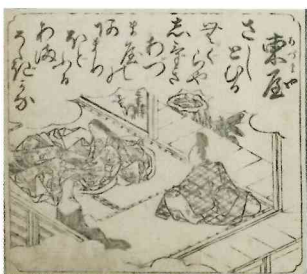 東屋
あづまや
さし
とむる
むぐらや
しげき
あづ
ま屋の
あまり
ほど
ふる
あま
そゝきかな